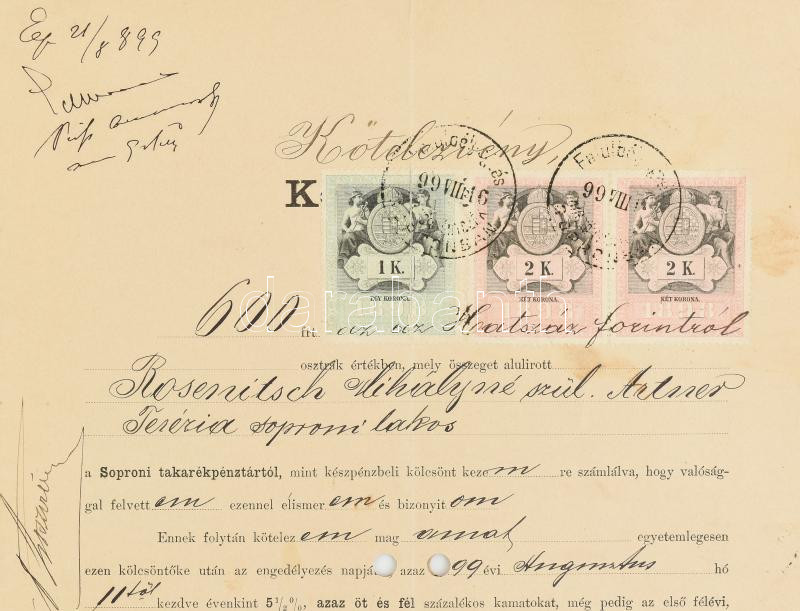 21/8 899
Kötelezvény,
K
1 K.
2 K.
2 K.
EGY KORONA.
KÉT KORONA.
KÉT KORONA.
99 VIII 16
99 VIII
600 frt. az az Hatszáz forintról
osztrák értékben, mely összeget alulirott
Rosenitsch Mihályné szül. Artner
Terézia soproni lakos
a Soproni takarékpénztártól, mint készpénzbeli kölcsönt kezem re számlálva, hogy valóság-
gal felvettem ezennel elismerem és bizonyitom
Ennek folytán kötelezem magamat egyetemlegesen
ezen kölcsöntőke után az engedélyezés napját azaz 899 évi Augusztus hó
11től kezdve évenkint 5½%, azaz öt és fél százalékos kamatokat, még pedig az első félévi,